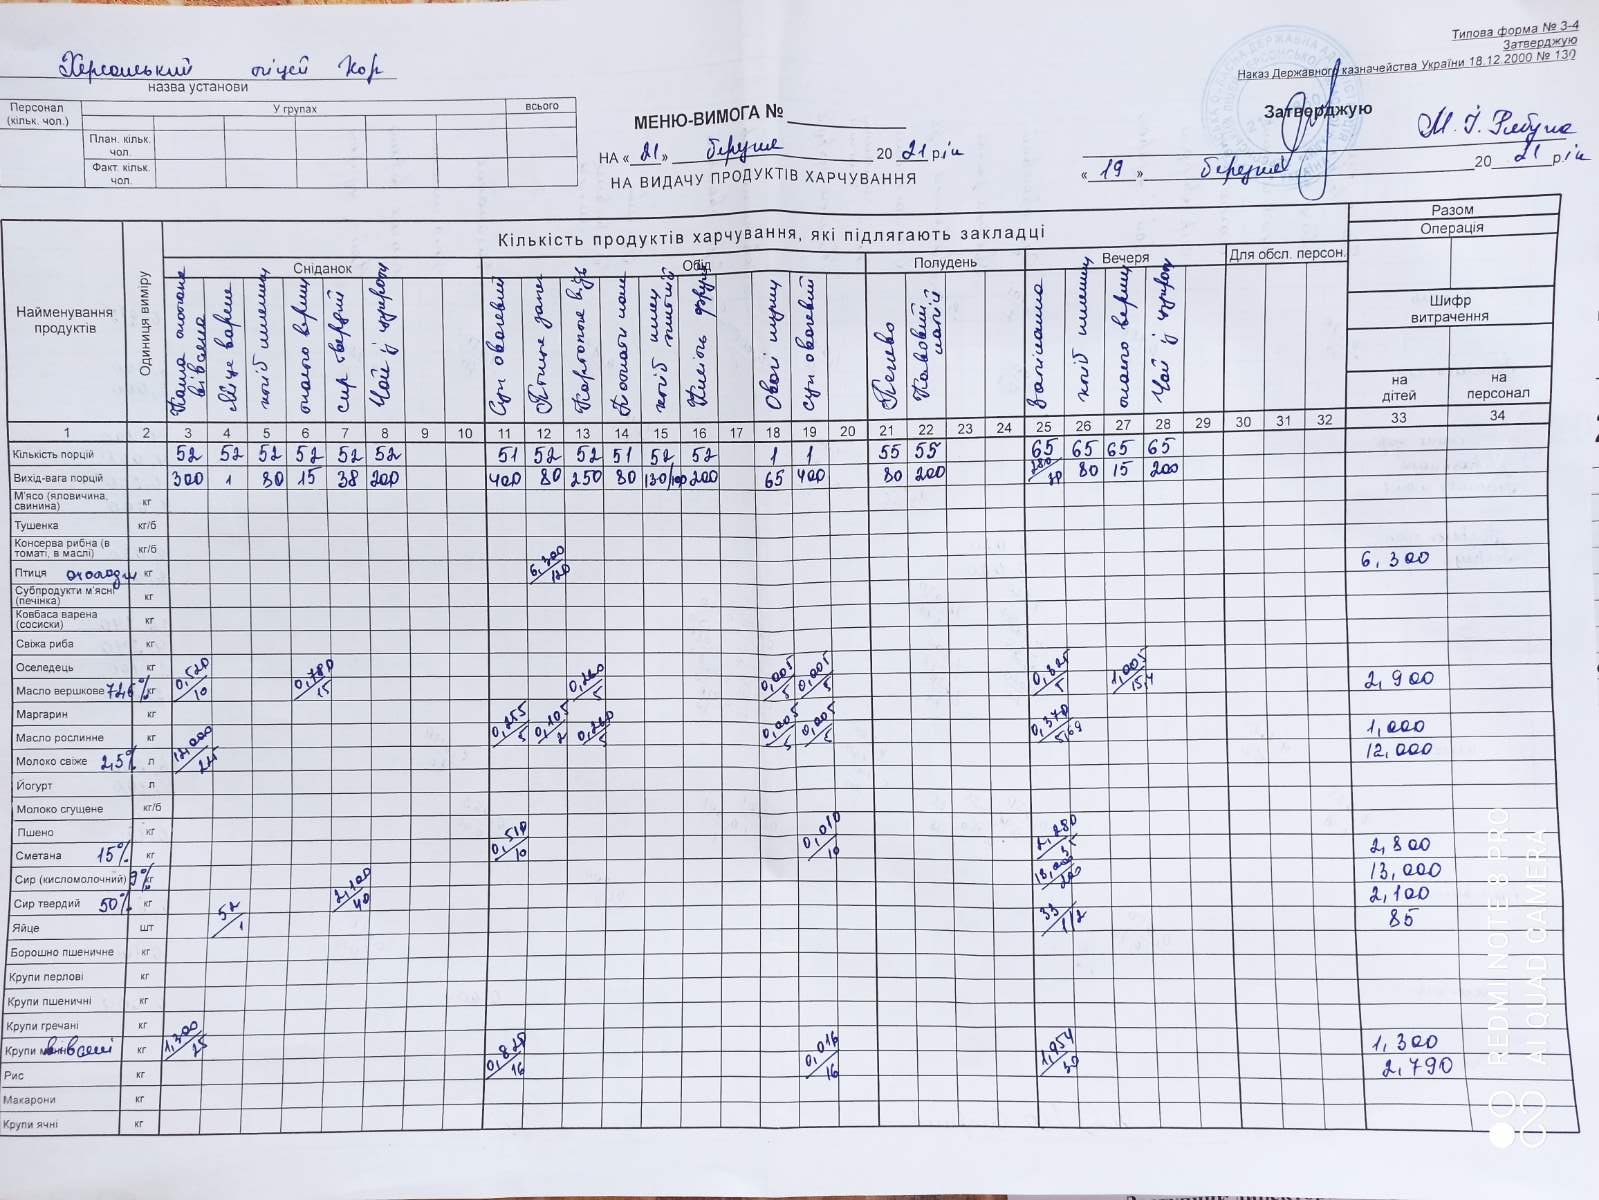 Типова форма № 3-4
Затверджую
Наказ Державного казначейства України 18.12.2000 № 130
Херсонський ліцей Хор
назва установи
Персонал (кільк. чол.) У групах всього
План. кільк. чол.
Факт. кільк. чол.
МЕНЮ-ВИМОГА №
НА « 21 » березня 20 21 рік
НА ВИДАЧУ ПРОДУКТІВ ХАРЧУВАННЯ
Затверджую
« 19 » березня 20 21 рік
Найменування продуктів
Одиниця виміру
Кількість продуктів харчування, які підлягають закладці
Разом
Операція
Шифр витрачення
на дітей
на персонал
Сніданок Обід Полудень Вечеря Для обсл. персон.
Яйце варене
сир твердий
Суп овочевий
суп овочевий
Печиво
1 2 3 4 5 6 7 8 9 10 11 12 13 14 15 16 17 18 19 20 21 22 23 24 25 26 27 28 29 30 31 32 33 34
Кількість порцій 52 52 52 52 52 52 51 52 52 51 52 52 1 1 55 55 65 65 65 65
Вихід-вага порцій 300 1 80 15 38 200 400 80 250 80 130/100 200 65 400 80 200 80 15 200
М'ясо (яловичина, свинина) кг
Тушенка кг/б
Консерва рибна (в томаті, в маслі) кг/б
Птиця кг 6,300/120 6,300
Субпродукти м'ясні (печінка) кг
Ковбаса варена (сосиски) кг
Свіжа риба кг
Оселедець кг
Масло вершкове кг 0,520/10 0,780/15 0,260/5 0,005/5 0,005/5 0,325/5 1,005/15,4 2,900
Маргарин кг
Масло рослинне кг 0,255/5 0,105/2 0,260/5 0,005/5 0,005/5 0,370/5,69 1,000
Молоко свіже 2,5% л 12,000
Йогурт л
Молоко сгущене кг/б
Пшено кг
Сметана 15% кг 0,510/10 0,010/10 2,280/35 2,800
Сир (кисломолочний) 9% кг 13,000/200 13,000
Сир твердий 50% кг 2,100/40 2,100
Яйце шт 52/1 33 1/2 85
Борошно пшеничне кг
Крупи перлові кг
Крупи пшеничні кг
Крупи гречані кг
Крупи вівсяні кг 1,300/25 1,300
Рис кг 0,820/16 0,016/16 1,954/30 2,790
Макарони кг
Крупи ячні кг
REDMI NOTE 8 PRO
AI QUAD CAMERA